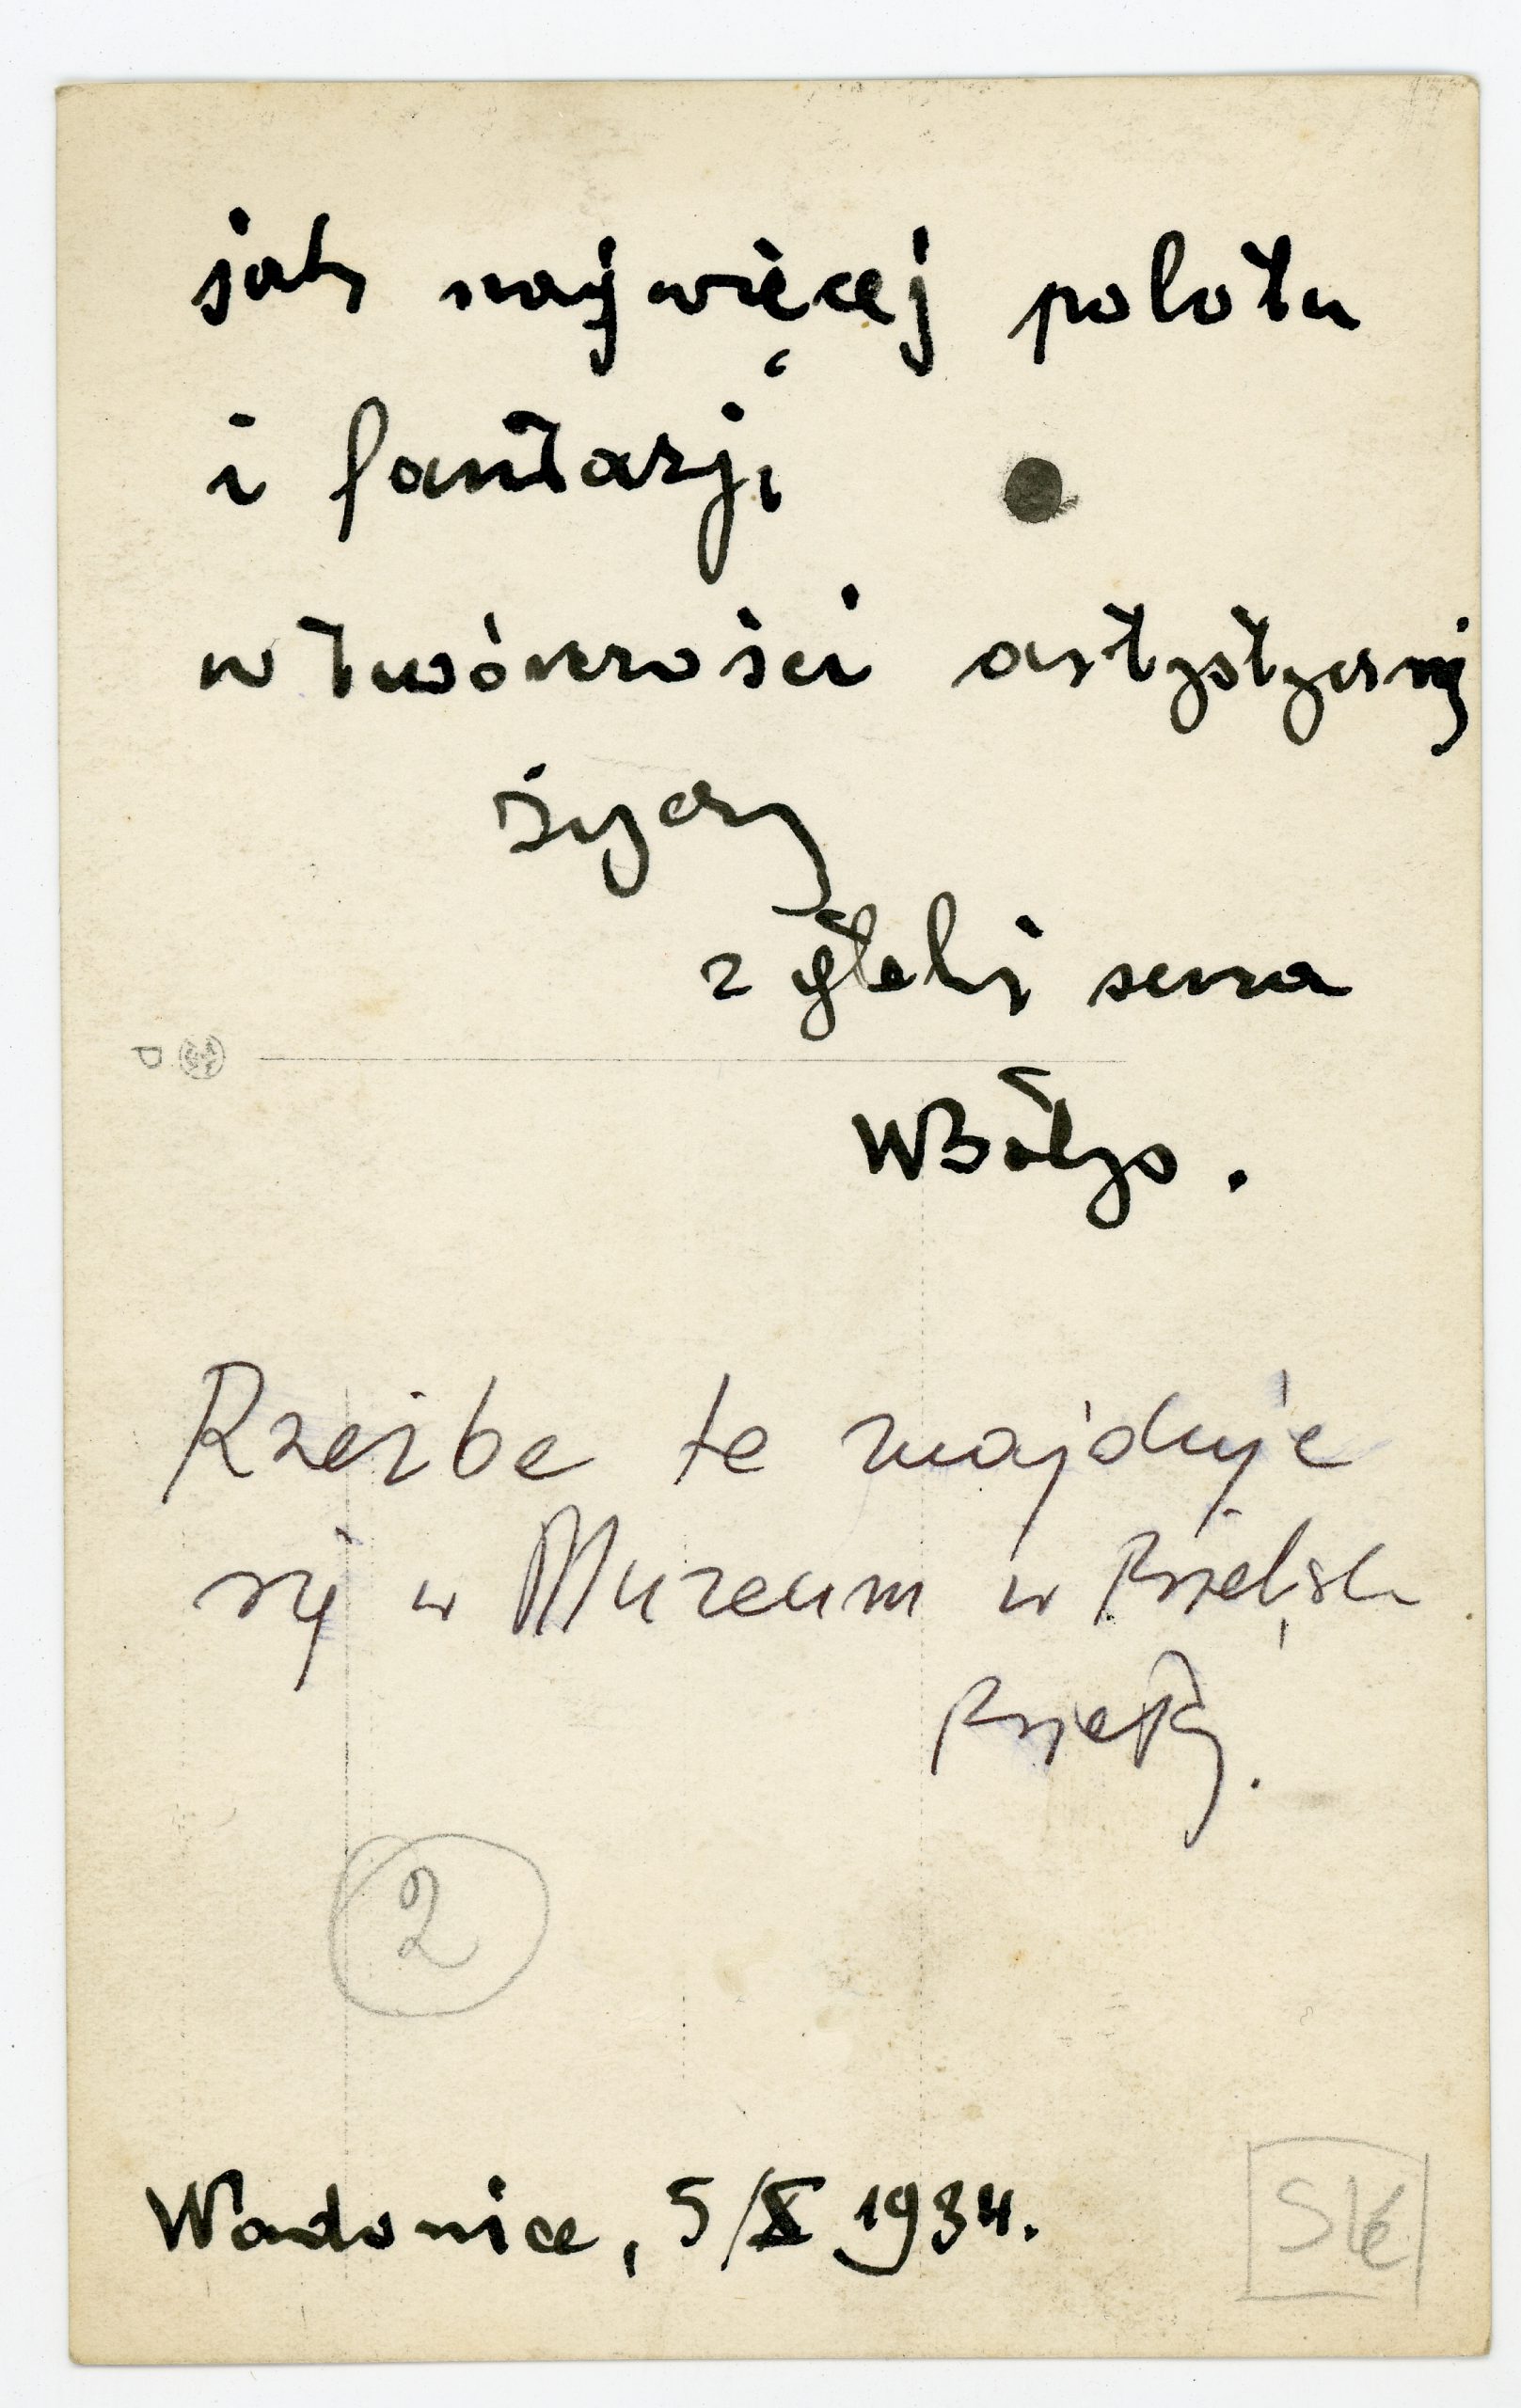 jak najwięcej polotu
i fantazji
w twórczości artystycznej
życzy
z głębi serca
WBałys.
Rzeźbe te znajduje
się w Muzeum w Bielsku
Białej.
2
Wadowice, 5/X 1934.